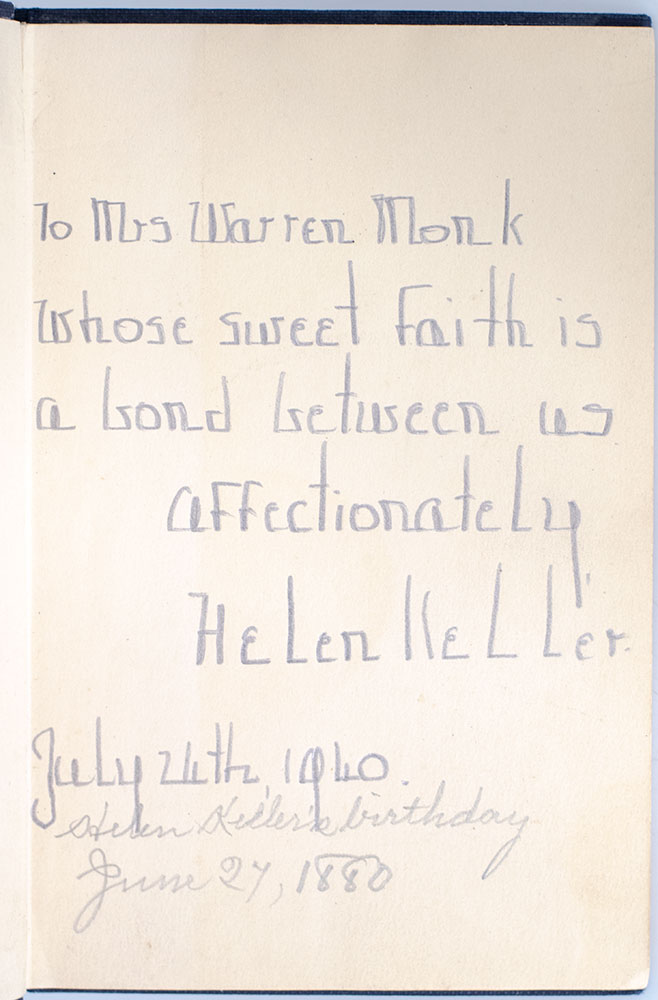 To Mrs Warren Monk
whose sweet faith is
a bond between us
affectionately
Helen Keller.
July 24th, 1940.
Helen Keller's birthday
June 27, 1880